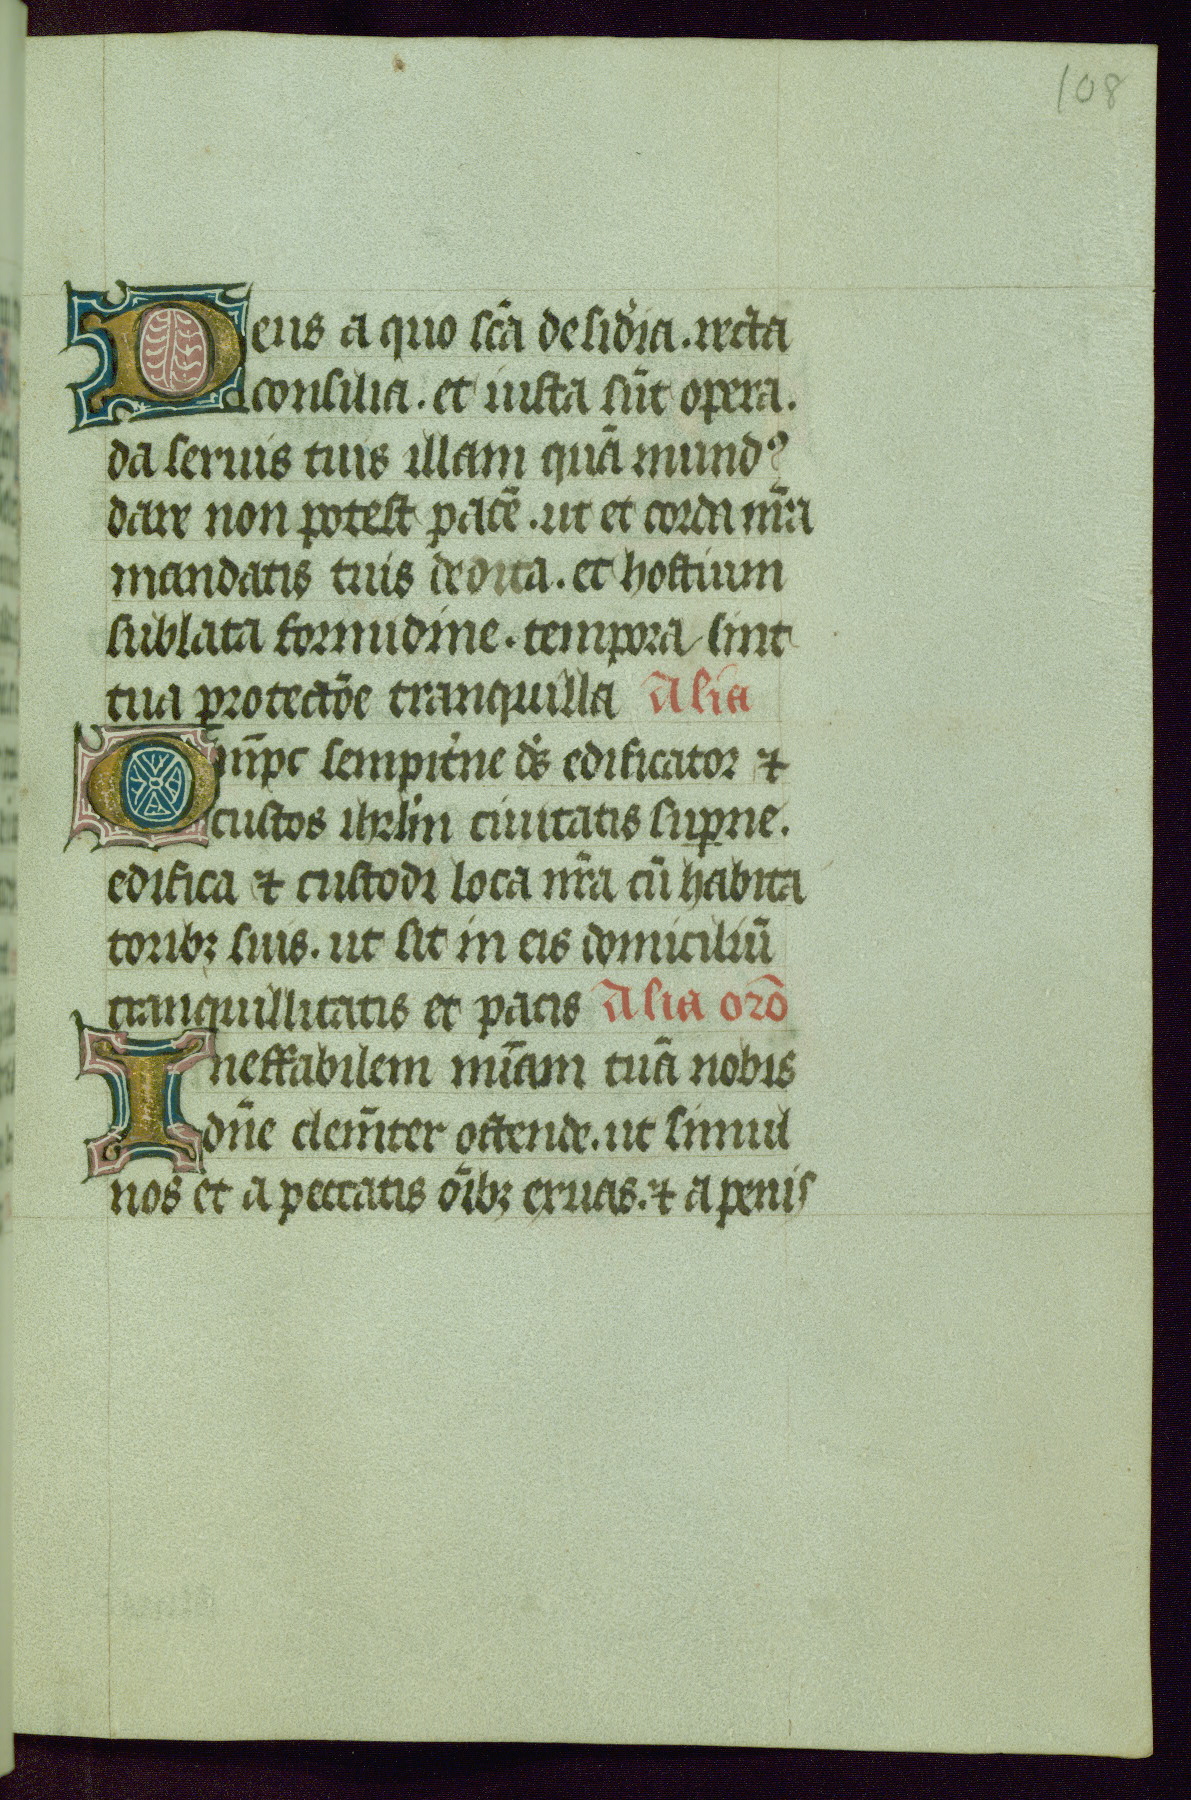 108
Deus a quo scā desid'ia. recta
consilia. et iusta sūt opera.
da seruis tuis illam quā mundꝰ
dare non potest pacē. ut et corda nr̄a
mandatis tuis dedita. et hostium
sublata formidine. tempora sint
tua protectōe tranquilla Alia
Omp̄c sempit'ne ds̄ edificator ⁊
custos ihrlm̄ ciuitatis sup̱ne.
edifica ⁊ custodi loca nr̄a cū habita
toribꝫ suis. ut sit in eis domiciliū
tranquillitatis et pacis Alia orō
Ineffabilem mīam tuā nobis
dn̄e clem̄ter ostende. ut simul
nos et a peccatis ōibꝫ eruas. ⁊ a penis